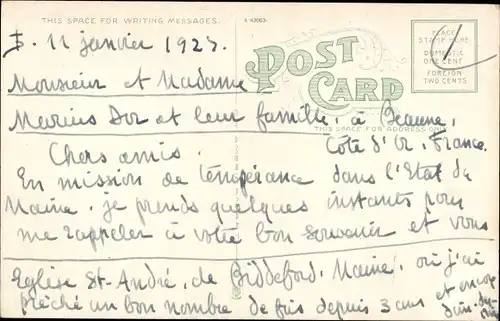 THIS SPACE FOR WRITING MESSAGES.
A-43063
PLACE
STAMP HERE
DOMESTIC
ONE CENT
FOREIGN
TWO CENTS
POST
CARD
THIS SPACE FOR ADDRESS ONLY
11 janvier 1923
Monsieur et Madame
Marius Dor et leur famille, à Beaune,
Côte d'Or, France.
Chers amis.
En mission de tempérance dans l'Etat du
Maine, je prends quelques instants pour
me rappeler à votre bon souvenir et vous
Eglise St-André, de Biddeford, Maine, où j'ai
prêché un bon nombre de fois depuis 3 ans et encore